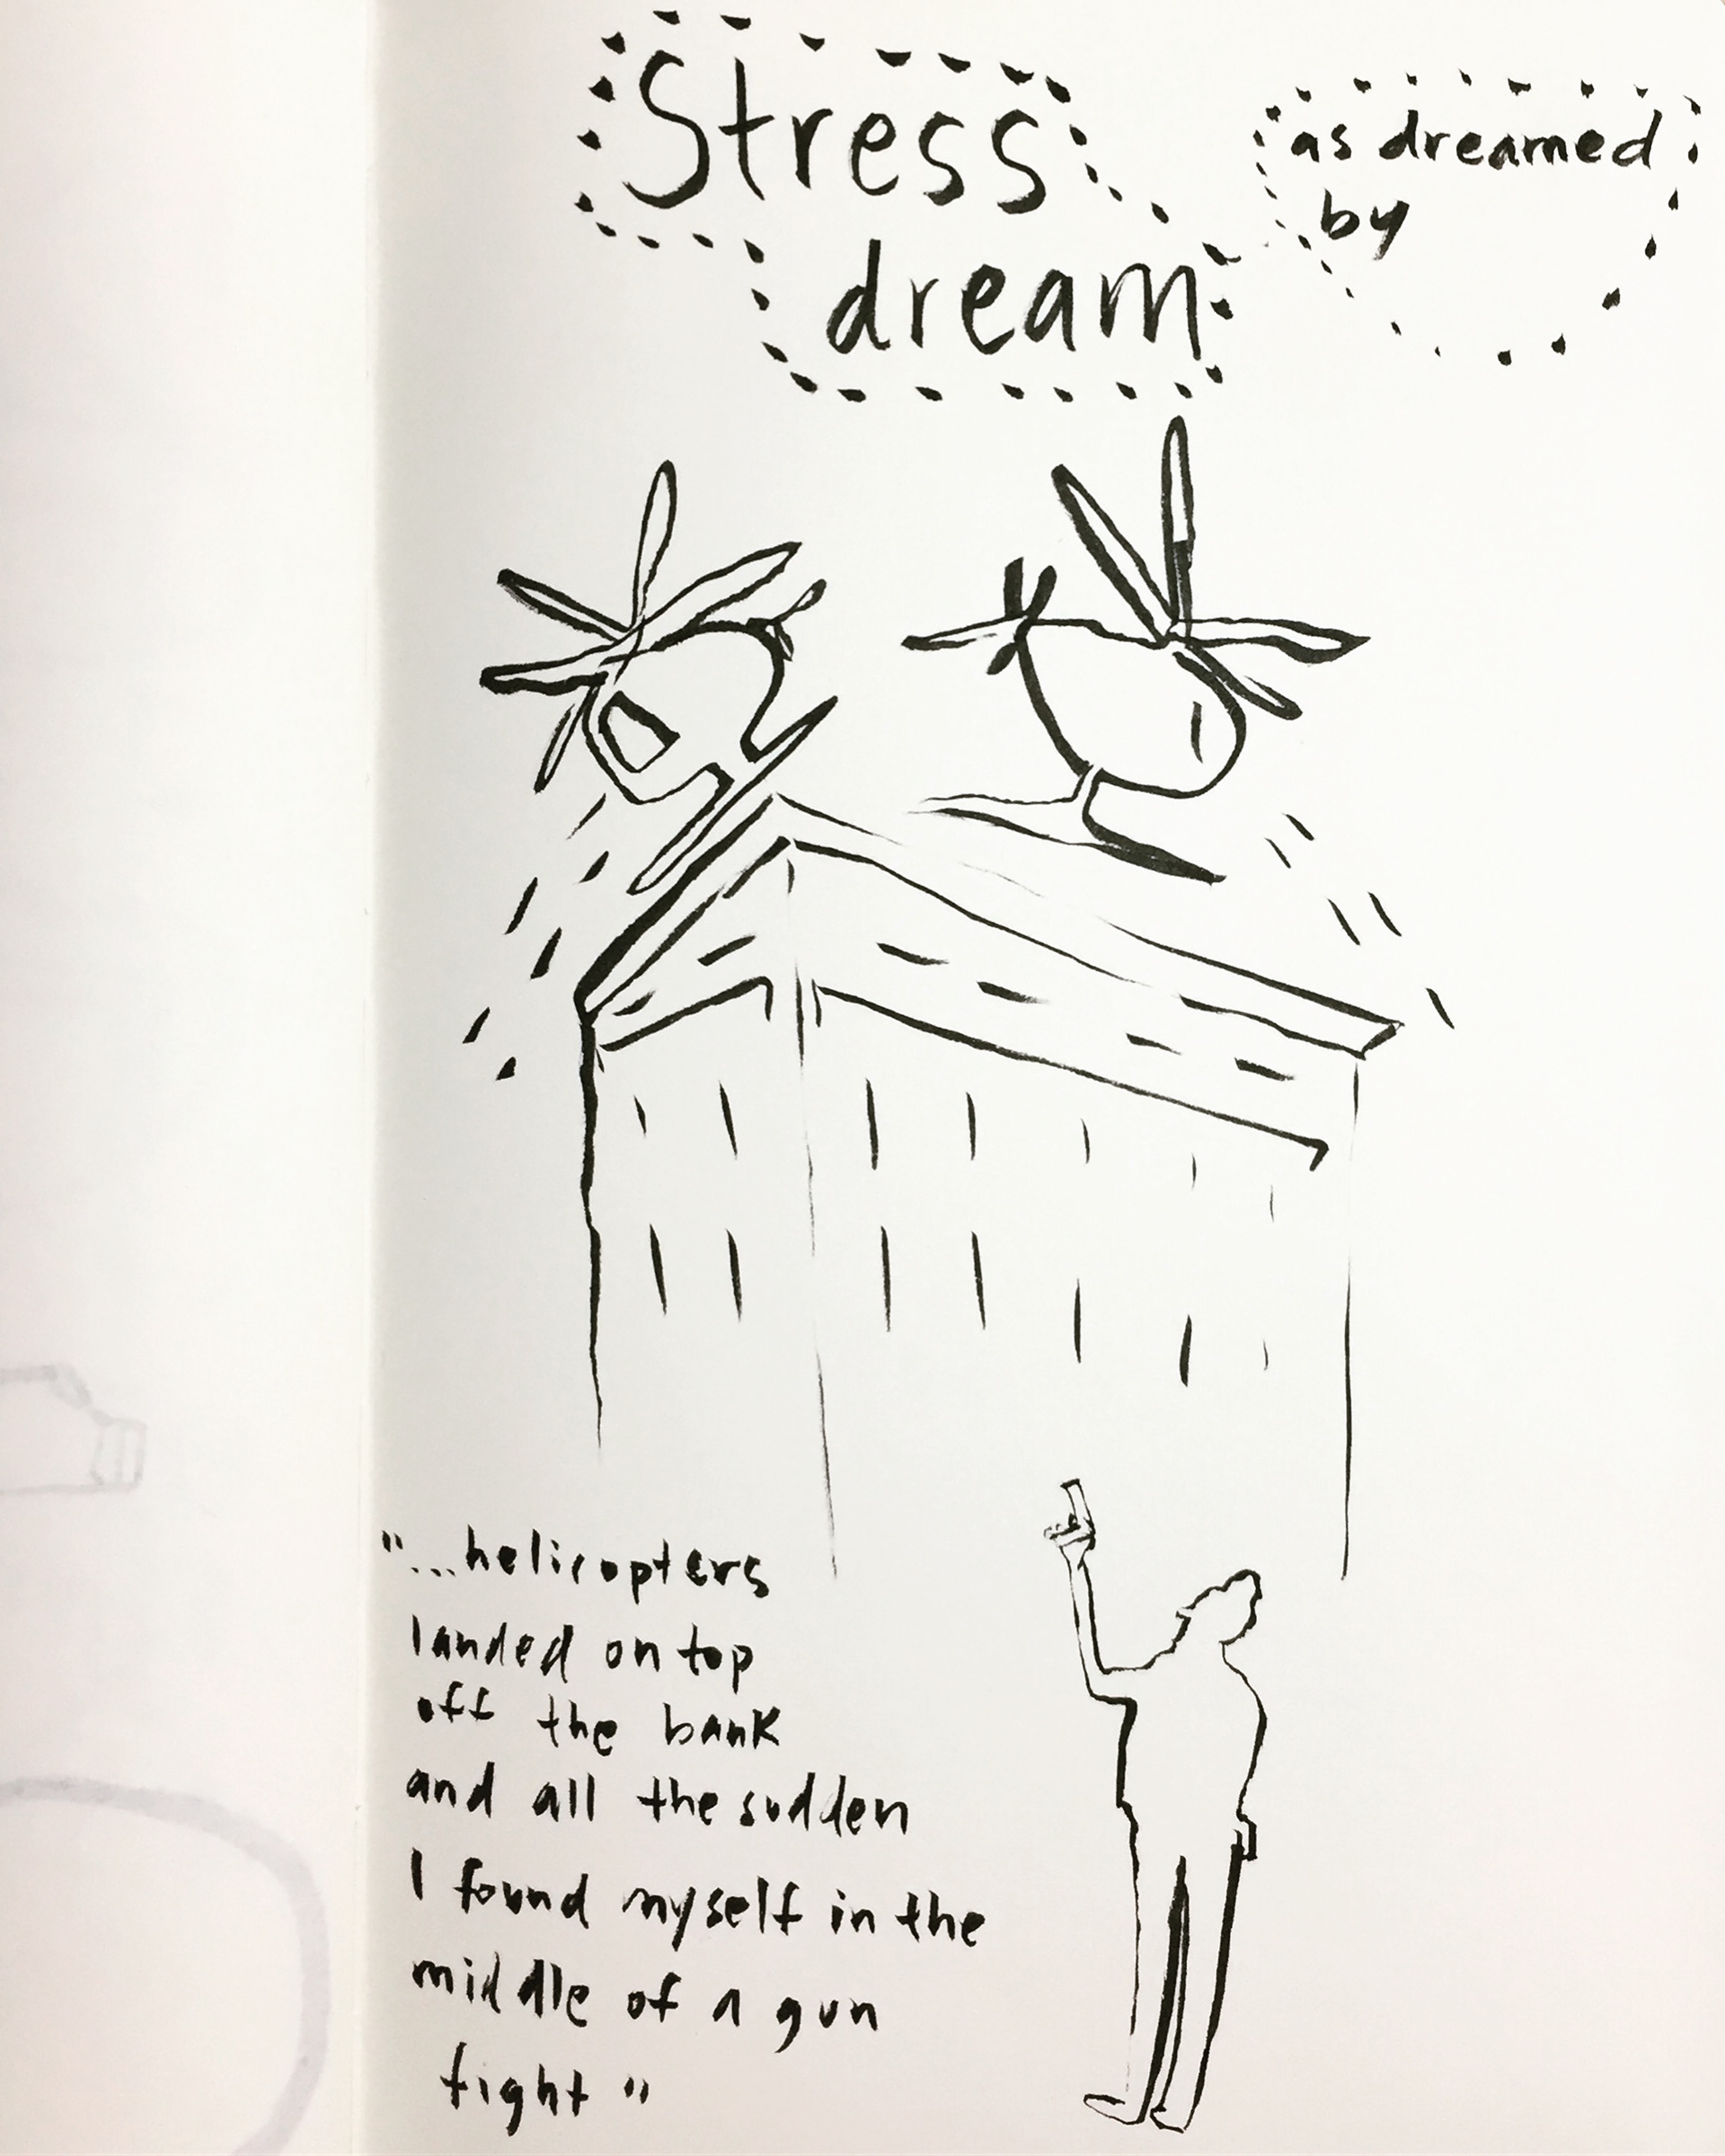 Stress
dream
as dreamed
by
"...helicopters
landed on top
off the bank
and all the sudden
I found myself in the
middle of a gun
fight"